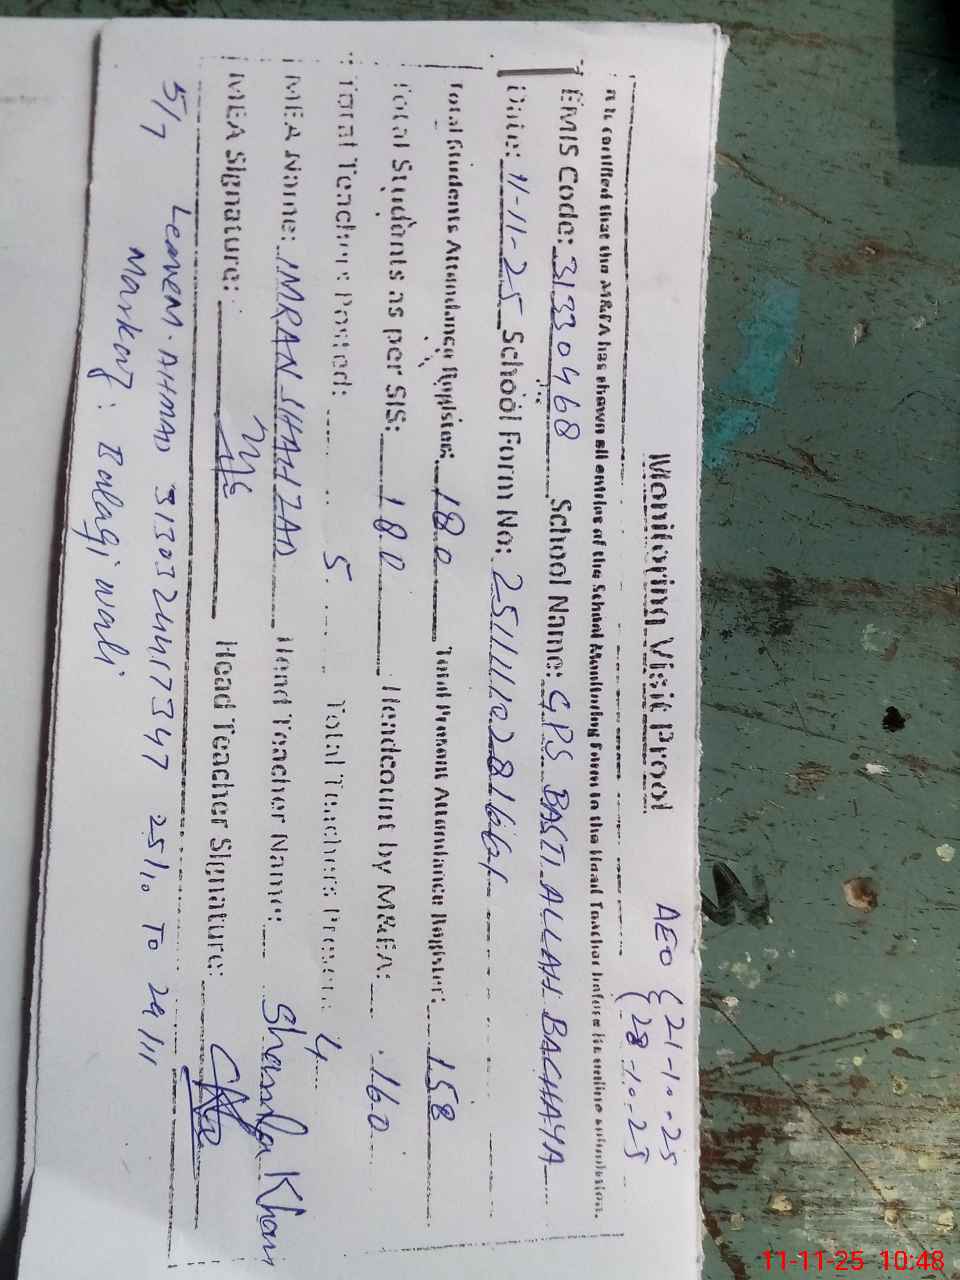 Monitoring Visit Proof
AEO { 21-10-25
{ 28-10-25
It is certified that the M&EA has shown all entries of the School Monitoring Form to the Head Teacher before its online submission.
EMIS Code: 31330468 School Name: GPS BASTI ALLAH BACHAYA
Date: 11-11-25 School Form No:
Total Students Attendance Register: 180 Total Present Attendance Register: 158
Total Students as per SIS: 180 Headcount by M&EA: 160
Total Teachers Posted: 5 Total Teachers Present: 4
MEA Name: IMRAN SHAHZAD Head Teacher Name: Khan
MEA Signature: Head Teacher Signature:
5/7 AHMAD 25/10 TO 29/11
Markaz:
11-11-25 10:48